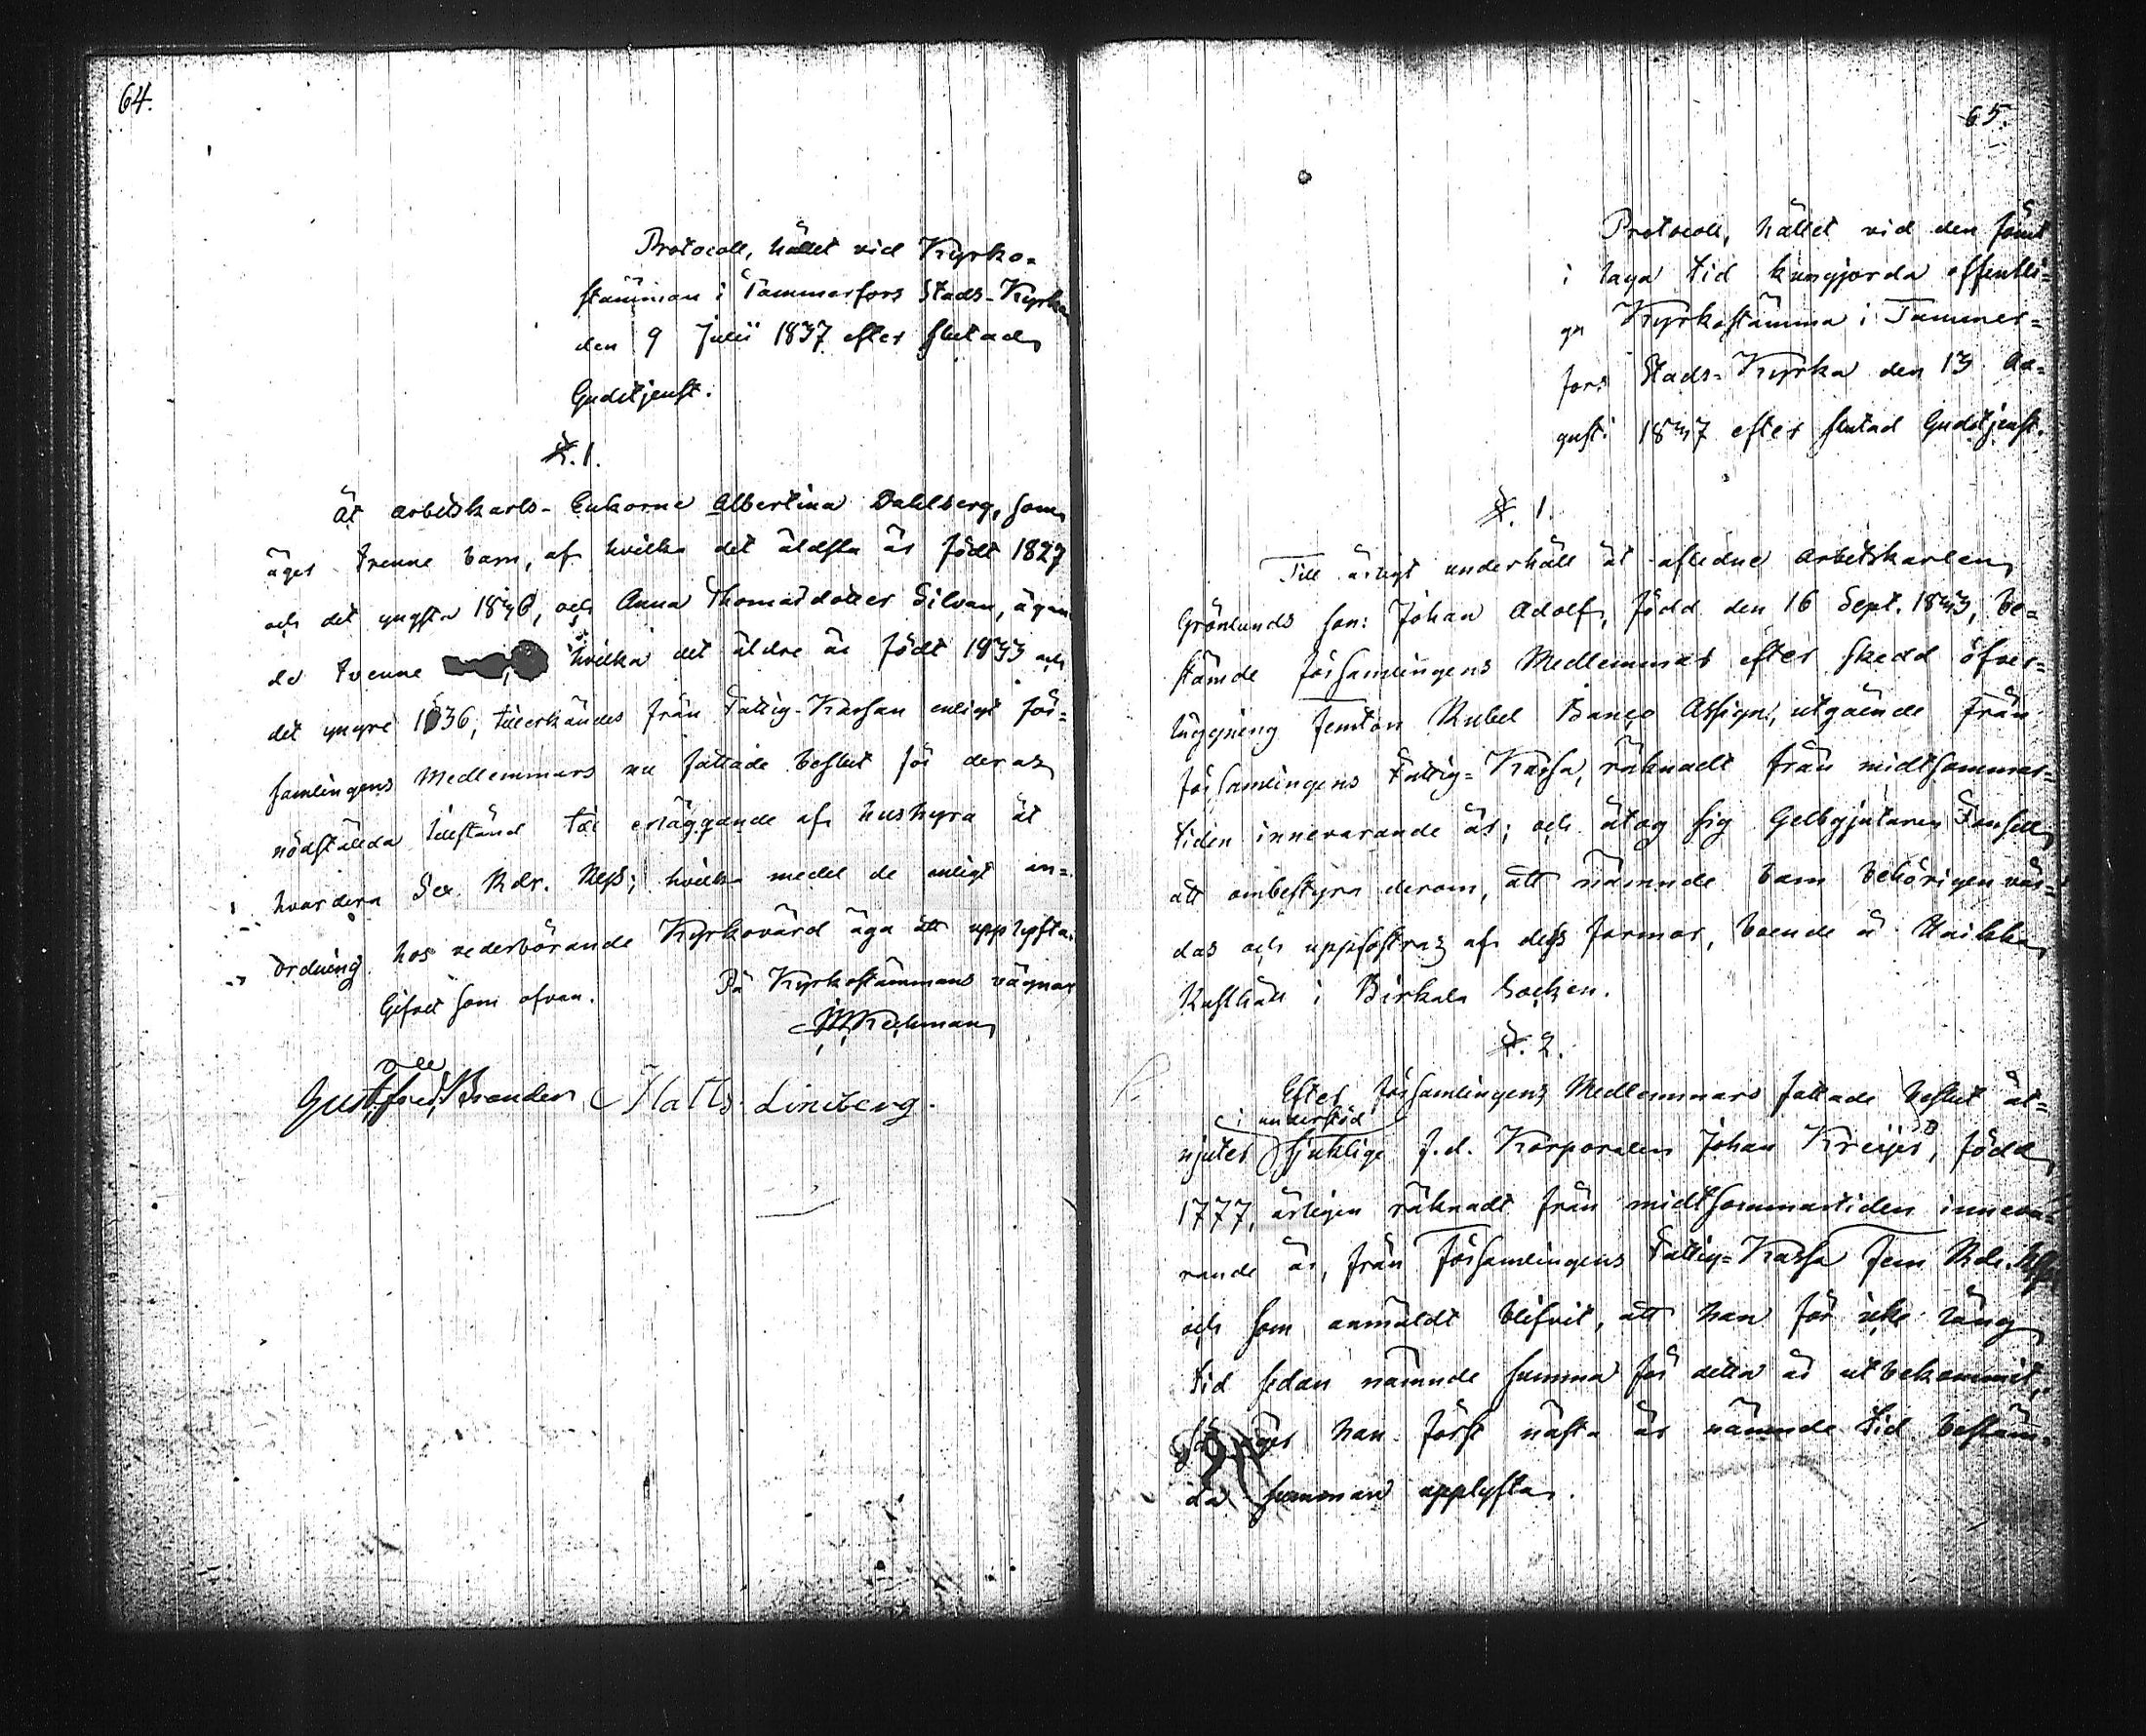 64.
Protocoll, hållet vid Kyrko-
stämman i Tammerfors Stads-Kyrka
den 9 Julii 1837 efter slutad
Gudstjenst.
§. 1.
Åt arbetskarls-Enkorne Albertina Dahlberg, som
äger trenne barn, af hvilka det äldsta är födt 1827
och det yngsta 1836, och Anna Thomasdotter Silvan, ägan-
de tvenne hvilka det äldre är födt 1833 och
det yngre 1836, tillerkändes från Fattig-Kassan enligt för-
samlingens Medlemmars nu fattade beslut för deras
nödstälda tillstånd till erläggande af hushyra åt
hvardera Sex Rdr. Rgs; hvilka medel de enligt in-
ordning hos vederbörande Kyrkovärd äga att upplyfta.
Gifvet som ofvan. På Kyrkostämmans vägnar
Gust. Branden Matts Lindberg.
65.
Protocoll, hållet vid den förut
i laga tid kungjorda offentli-
ga Kyrkostämma i Tammer-
fors Stads-Kyrka den 13 Au-
gusti 1837 efter slutad Gudstjenst.
§. 1.
Till årligt underhåll åt aflidne arbetskarlen
Grönlunds son: Johan Adolf, född den 16 Sept. 1833, be-
stämde församlingens Medlemmar efter skedd öfver-
läggning femton Rubel Banco Assign:, utgående från
församlingens Fattig-Kassa, räknadt från midtsommar-
tiden innevarande år; och åtog sig Gelbgjutaren
att ombestyra derom, att nämnde barn behörigen vår-
das och uppfostras af dess farmor, boende å Haikka
Rusthåll i Birkala Socken.
§. 2.
Efter församlingens Medlemmars fattade beslut åt-
i understöd
njuter sjuklige f.d. Korporalen Johan Kreijer, född
1777, årligen räknadt från midtsommartiden inneva-
rande år, från församlingens Fattig-Kassa fem Rdr. Rgs
och som anmäldt blifvit, att han för icke lång
tid sedan nämnde summa för detta år utbekommit,
så äger han först nästa år nämnde tid bestäm-
da summan upplyfta.